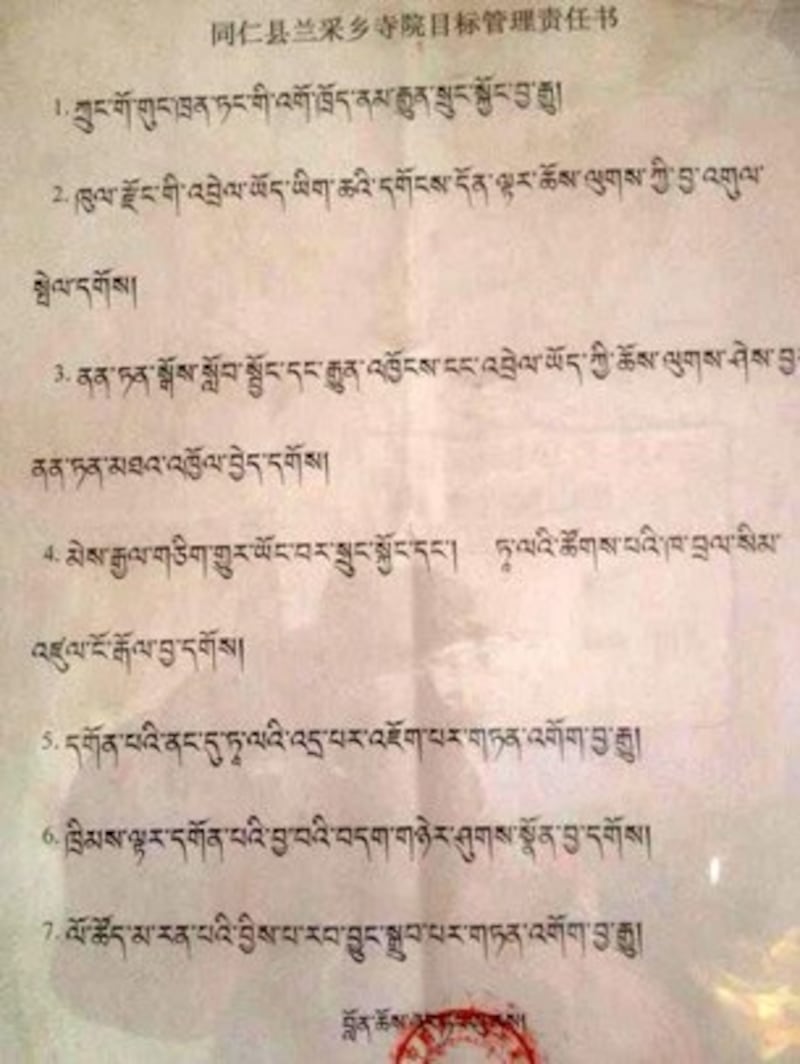 同仁县兰采乡寺院目标管理责任书
1. ཀྲུང་གོ་གུང་ཁྲན་ཏང་གི་འགོ་ཁྲོད་ནམ་རྒྱུན་སྲུང་སྐྱོང་བྱ་རྒྱུ།
2. ཁུལ་རྫོང་གི་འབྲེལ་ཡོད་ཡིག་ཆའི་དགོངས་དོན་ལྟར་ཆོས་ལུགས་ཀྱི་བྱ་འགུལ་
སྤེལ་དགོས།
3. ནན་ཏན་སྒོས་སློབ་སྦྱོང་དང་རྒྱུན་འཁྱོངས་ངང་འབྲེལ་ཡོད་ཀྱི་ཆོས་ལུགས་ཤེས་བྱ་
ནན་ཏན་མཐའ་འཁྱོལ་བྱེད་དགོས།
4. མེས་རྒྱལ་གཅིག་གྱུར་ཡོང་བར་སྲུང་སྐྱོང་དང་། ཏཱ་ལའི་ཚོགས་པའི་ཁ་བྲལ་སིམ་
འཛུལ་ངོ་རྒོལ་བྱ་དགོས།
5. དགོན་པའི་ནང་དུ་ཏཱ་ལའི་འདྲ་པར་འཇོག་པར་གཏན་འགོག་བྱ་རྒྱུ།
6. ཁྲིམས་ལྟར་དགོན་པའི་བྱ་བའི་བདག་གཉེར་ཤུགས་སྣོན་བྱ་དགོས།
7. ལོ་ཚོད་མ་རན་པའི་བྱིས་པ་རབ་བྱུང་སྒྲུབ་པར་གཏན་འགོག་བྱ་རྒྱུ།
བློན་ཆོས་